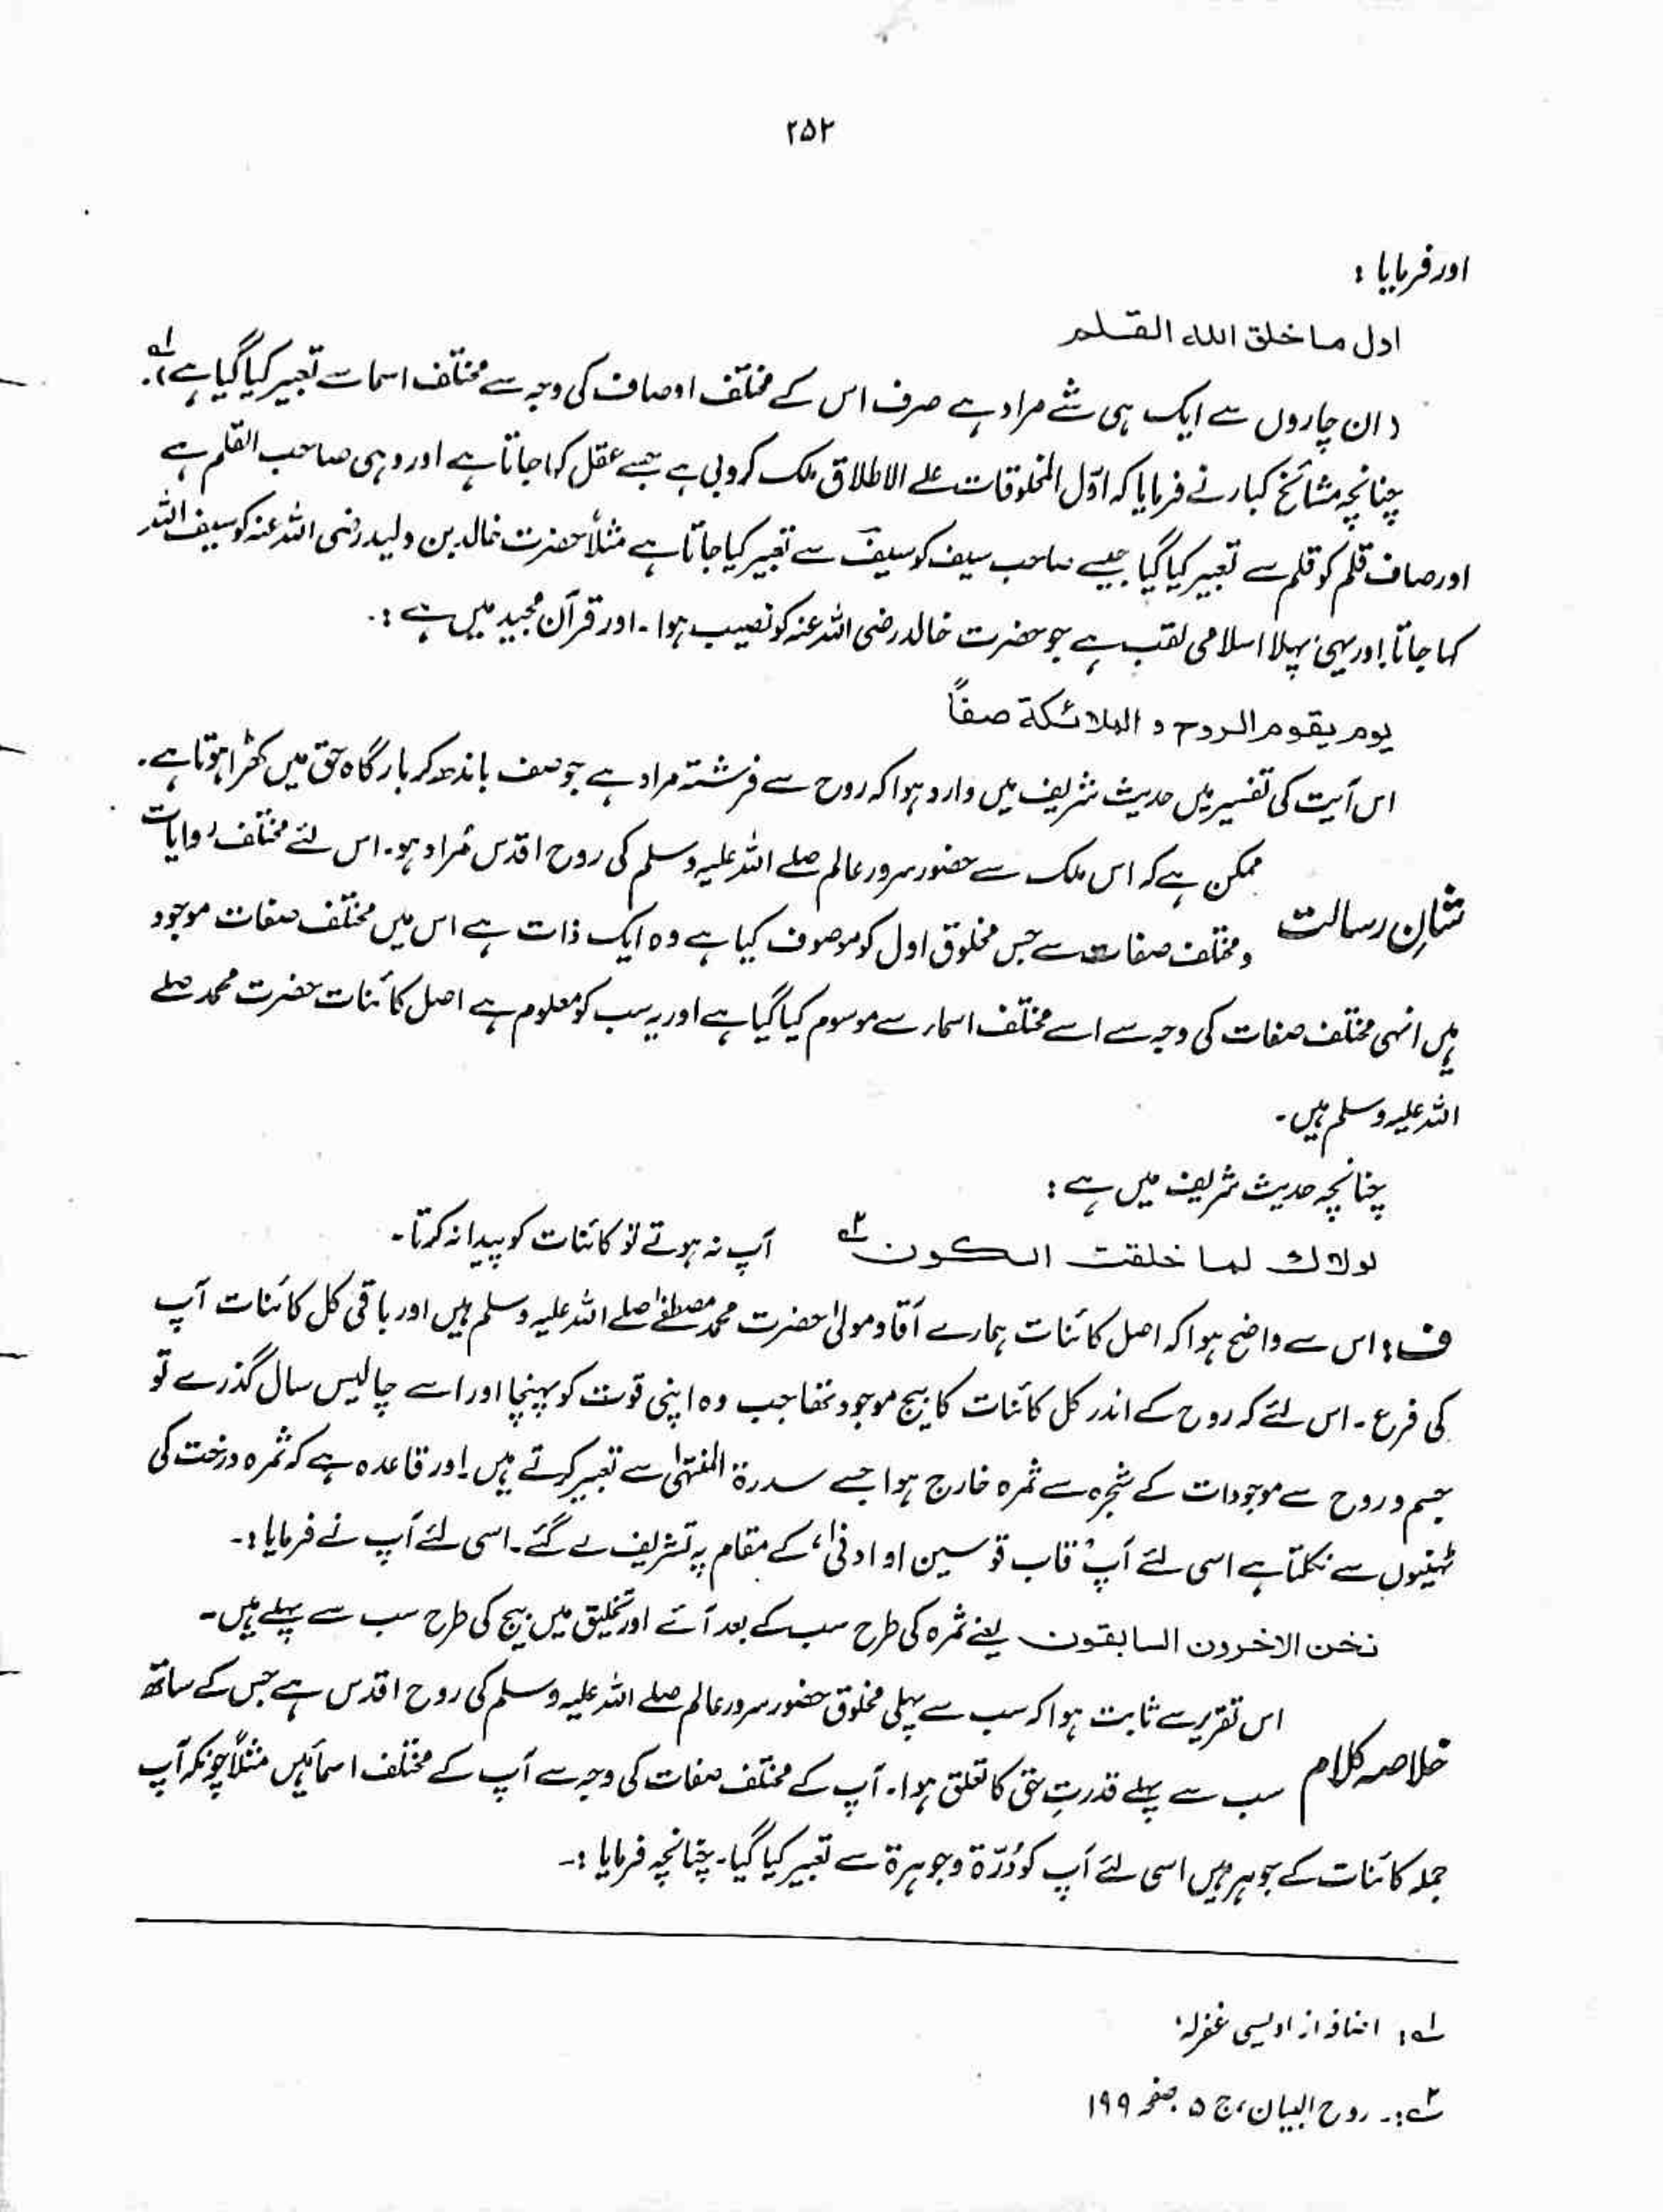 ۲۵۲
اور فرمایا :
اول ما خلق الله القلم
( ان چاروں سے ایک ہی شے مراد ہے صرف اس کے مختلف اوصاف کی وجہ سے مختلف اسما سے تعبیر کیا گیا ہے)۔ ۱؎
چنانچہ مشائخ کبار نے فرمایا کہ اوّل المخلوقات علے الاطلاق ملک کروبی ہے جسے عقل کہا جاتا ہے اور وہی صاحب القلم ہے
اور صاف قلم کو قلم سے تعبیر کیا گیا جیسے صاحب سیف کو سیف سے تعبیر کیا جاتا ہے مثلاً حضرت خالد بن ولید رضی اللہ عنہ کو سیف اللہ
کہا جاتا اور یہی پہلا اسلامی لقب ہے جو حضرت خالد رضی اللہ عنہ کو نصیب ہوا ۔ اور قرآن مجید میں ہے :۔
یوم یقوم الروح و الملائکة صفاً
اس آیت کی تفسیر میں حدیث شریف میں وارد ہوا کہ روح سے فرشتہ مراد ہے جو صف باندھ کر بارگاہ حق میں کھڑا ہوتا ہے ۔
شانِ رسالت ممکن ہے کہ اس ملک سے حضور سرور عالم صلے اللہ علیہ وسلم کی روح اقدس مُراد ہو۔ اس لئے مختلف روایات
و مختلف صفات سے جس مخلوق اول کو موصوف کیا ہے وہ ایک ذات ہے اس میں مختلف صفات موجود
ہیں انہی مختلف صفات کی وجہ سے اسے مختلف اسمار سے موسوم کیا گیا ہے اور یہ سب کو معلوم ہے اصل کائنات حضرت محمد صلے
اللہ علیہ وسلم ہیں ۔
چنانچہ حدیث شریف میں ہے :
لولاك لما خلقت الكون ۲؎ آپ نہ ہوتے تو کائنات کو پیدا نہ کرتا ۔
ف : اس سے واضح ہوا کہ اصل کائنات ہمارے آقا و مولیٰ حضرت محمد مصطفےٰ صلے اللہ علیہ وسلم ہیں اور باقی کل کائنات آپ
کی فرع ۔ اس لئے کہ روح کے اندر کل کائنات کا بیج موجود تھا جب وہ اپنی قوت کو پہنچا اور اسے چالیس سال گذرے تو
جسم و روح سے موجودات کے شجرہ سے ثمرہ خارج ہوا جسے سدرۃ المنتہٰی سے تعبیر کرتے ہیں اور قاعدہ ہے کہ ثمرہ درخت کی
ٹہنیوں سے نکلتا ہے اسی لئے آپ ’قاب قوسین او ادنیٰ‘ کے مقام پہ تشریف لے گئے ۔ اسی لئے آپ نے فرمایا :۔
نحن الاخرون السابقون یعنے ثمرہ کی طرح سب کے بعد آئے اور تخلیق میں بیج کی طرح سب سے پہلے ہیں ۔
خلاصہ کلام اس تقریر سے ثابت ہوا کہ سب سے پہلی مخلوق حضور سرور عالم صلے اللہ علیہ وسلم کی روح اقدس ہے جس کے ساتھ
سب سے پہلے قدرتِ حق کا تعلق ہوا ۔ آپ کے مختلف صفات کی وجہ سے آپ کے مختلف اسما ہیں مثلاً چونکہ آپ
جملہ کائنات کے جوہر ہیں اسی لئے آپ کو دُرّۃ و جوہرۃ سے تعبیر کیا گیا ۔ چنانچہ فرمایا :۔
۱؎ : اضافہ از اویسی غفرلہٗ
۲؎ :۔ روح البیان، ج ۵ صفحہ ۱۹۹